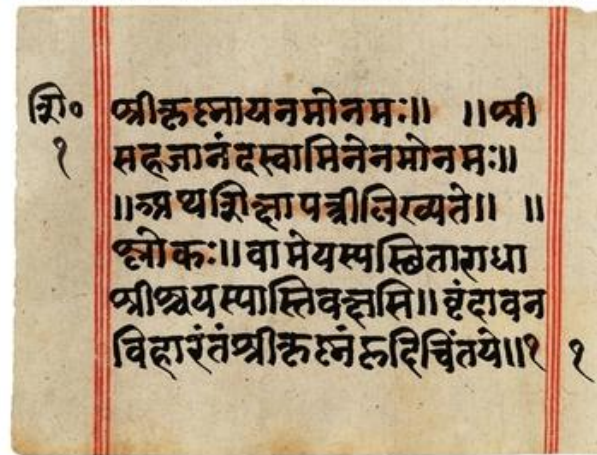 शि०
१
श्रीकृष्नायनमोनमः॥ ॥श्री
सहजानंदस्वामिनेनमोनमः॥
॥अथशिक्षापत्रीलिख्यते॥ ॥
श्लोकः॥वामेयस्यस्थिताराधा
श्रीश्चयस्यास्तिवक्षसि॥वृंदावन
विहारंतंश्रीकृष्नंहृदिचिंतये॥१
१